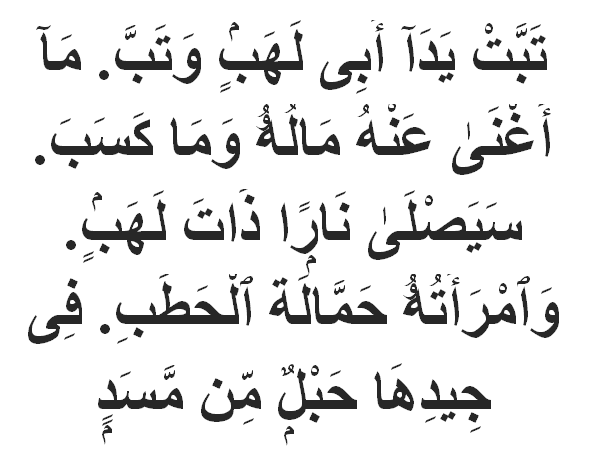 تَبَّتْ يَدَآ أَبِى لَهَبٍۢ وَتَبَّ. مَآ
أَغْنَىٰ عَنْهُ مَالُهُۥ وَمَا كَسَبَ.
سَيَصْلَىٰ نَارًا ذَاتَ لَهَبٍۢ.
وَٱمْرَأَتُهُۥ حَمَّالَةَ ٱلْحَطَبِ. فِى
جِيدِهَا حَبْلٌۭ مِّن مَّسَدٍۭ